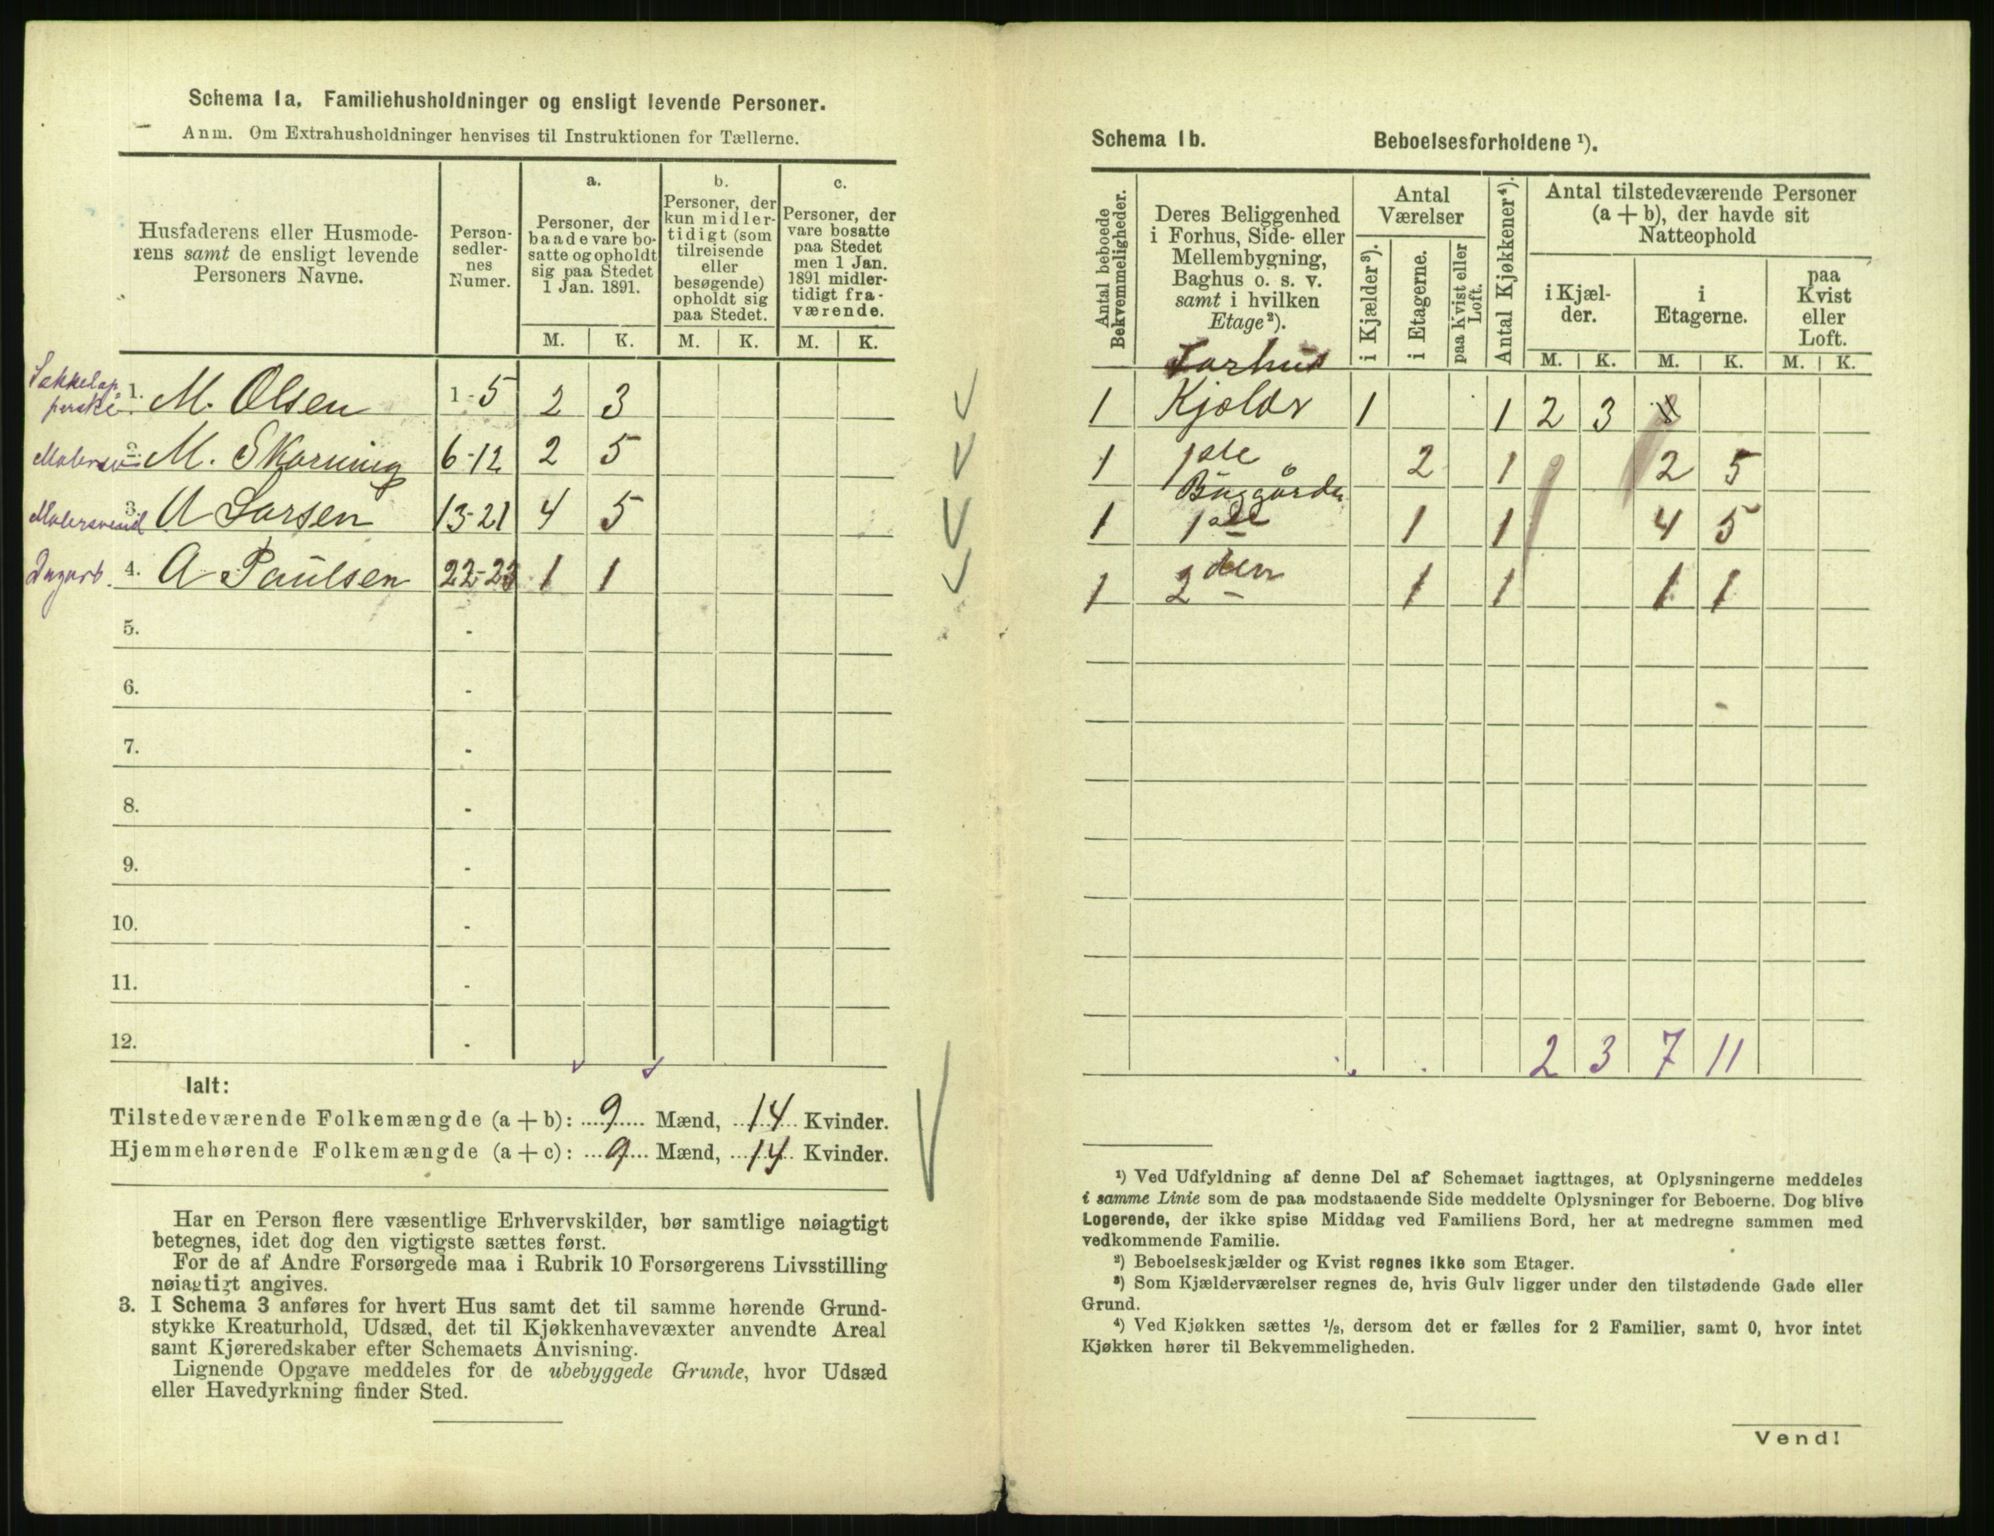 Schema 1a. Familiehusholdninger og ensligt levende Personer.
Anm. Om Extrahusholdninger henvises til Instruktionen for Tællerne.
Husfaderens eller Husmode-
rens samt de ensligt levende
Personers Navne.
Person-
sedler-
nes
Numer.
a.
Personer, der
baade vare bo-
satte og opholdt
sig paa Stedet
1 Jan. 1891.
b.
Personer, der
kun midler-
tidigt (som
tilreisende
eller
besøgende)
opholdt sig
paa Stedet.
c.
Personer, der
vare bosatte
paa Stedet
men 1 Jan.
1891 midler-
tidigt fra-
værende.
M. K. M. K. M. K.
1. M. Olsen 1-5 2 3
M. Skorning 6-12 2 5
Malersvend 3. A Larsen 13-21 4 5
Dagarb. 4. A Paulsen 22-23 1 1
5. -
6. -
7. -
8. -
9. -
10. -
11. -
12. -
Ialt:
Tilstedeværende Folkemængde (a + b): 9 Mænd, 14 Kvinder.
Hjemmehørende Folkemængde (a + c): 9 Mænd, 14 Kvinder.
Har en Person flere væsentlige Erhvervskilder, bør samtlige nøiagtigt
betegnes, idet dog den vigtigste sættes først.
For de af Andre Forsørgede maa i Rubrik 10 Forsørgerens Livsstilling
nøiagtigt angives.
3. I Schema 3 anføres for hvert Hus samt det til samme hørende Grund-
stykke Kreaturhold, Udsæd, det til Kjøkkenhavevæxter anvendte Areal
samt Kjøreredskaber efter Schemaets Anvisning.
Lignende Opgave meddeles for de ubebyggede Grunde, hvor Udsæd
eller Havedyrkning finder Sted.
Schema 1b. Beboelsesforholdene ¹).
Antal beboede
Bekvemmeligheder.
Deres Beliggenhed
i Forhus, Side- eller
Mellembygning,
Baghus o. s. v.
samt i hvilken
Etage²).
Antal
Værelser
i Kjælder³).
i Etagerne.
paa Kvist eller
Loft.
Antal Kjøkkener⁴).
Antal tilstedeværende Personer
(a + b), der havde sit
Natteophold
i Kjæl-
der.
i
Etagerne.
paa
Kvist
eller
Loft.
M. K. M. K. M. K.
Forhus
1 Kjelder 1 1 2 3
1 1ste 2 1 2 5
Bággården
1 1ste 1 1 4 5
1 2den 1 1 1 1
2 3 7 11
¹) Ved Udfyldning af denne Del af Schemaet iagttages, at Oplysningerne meddeles
i samme Linie som de paa modstaaende Side meddelte Oplysninger for Beboerne. Dog blive
Logerende, der ikke spise Middag ved Familiens Bord, her at medregne sammen med
vedkommende Familie.
²) Beboelseskjælder og Kvist regnes ikke som Etager.
³) Som Kjælderværelser regnes de, hvis Gulv ligger under den tilstødende Gade eller
Grund.
⁴) Ved Kjøkken sættes ½, dersom det er fælles for 2 Familier, samt 0, hvor intet
Kjøkken hører til Bekvemmeligheden.
Vend!